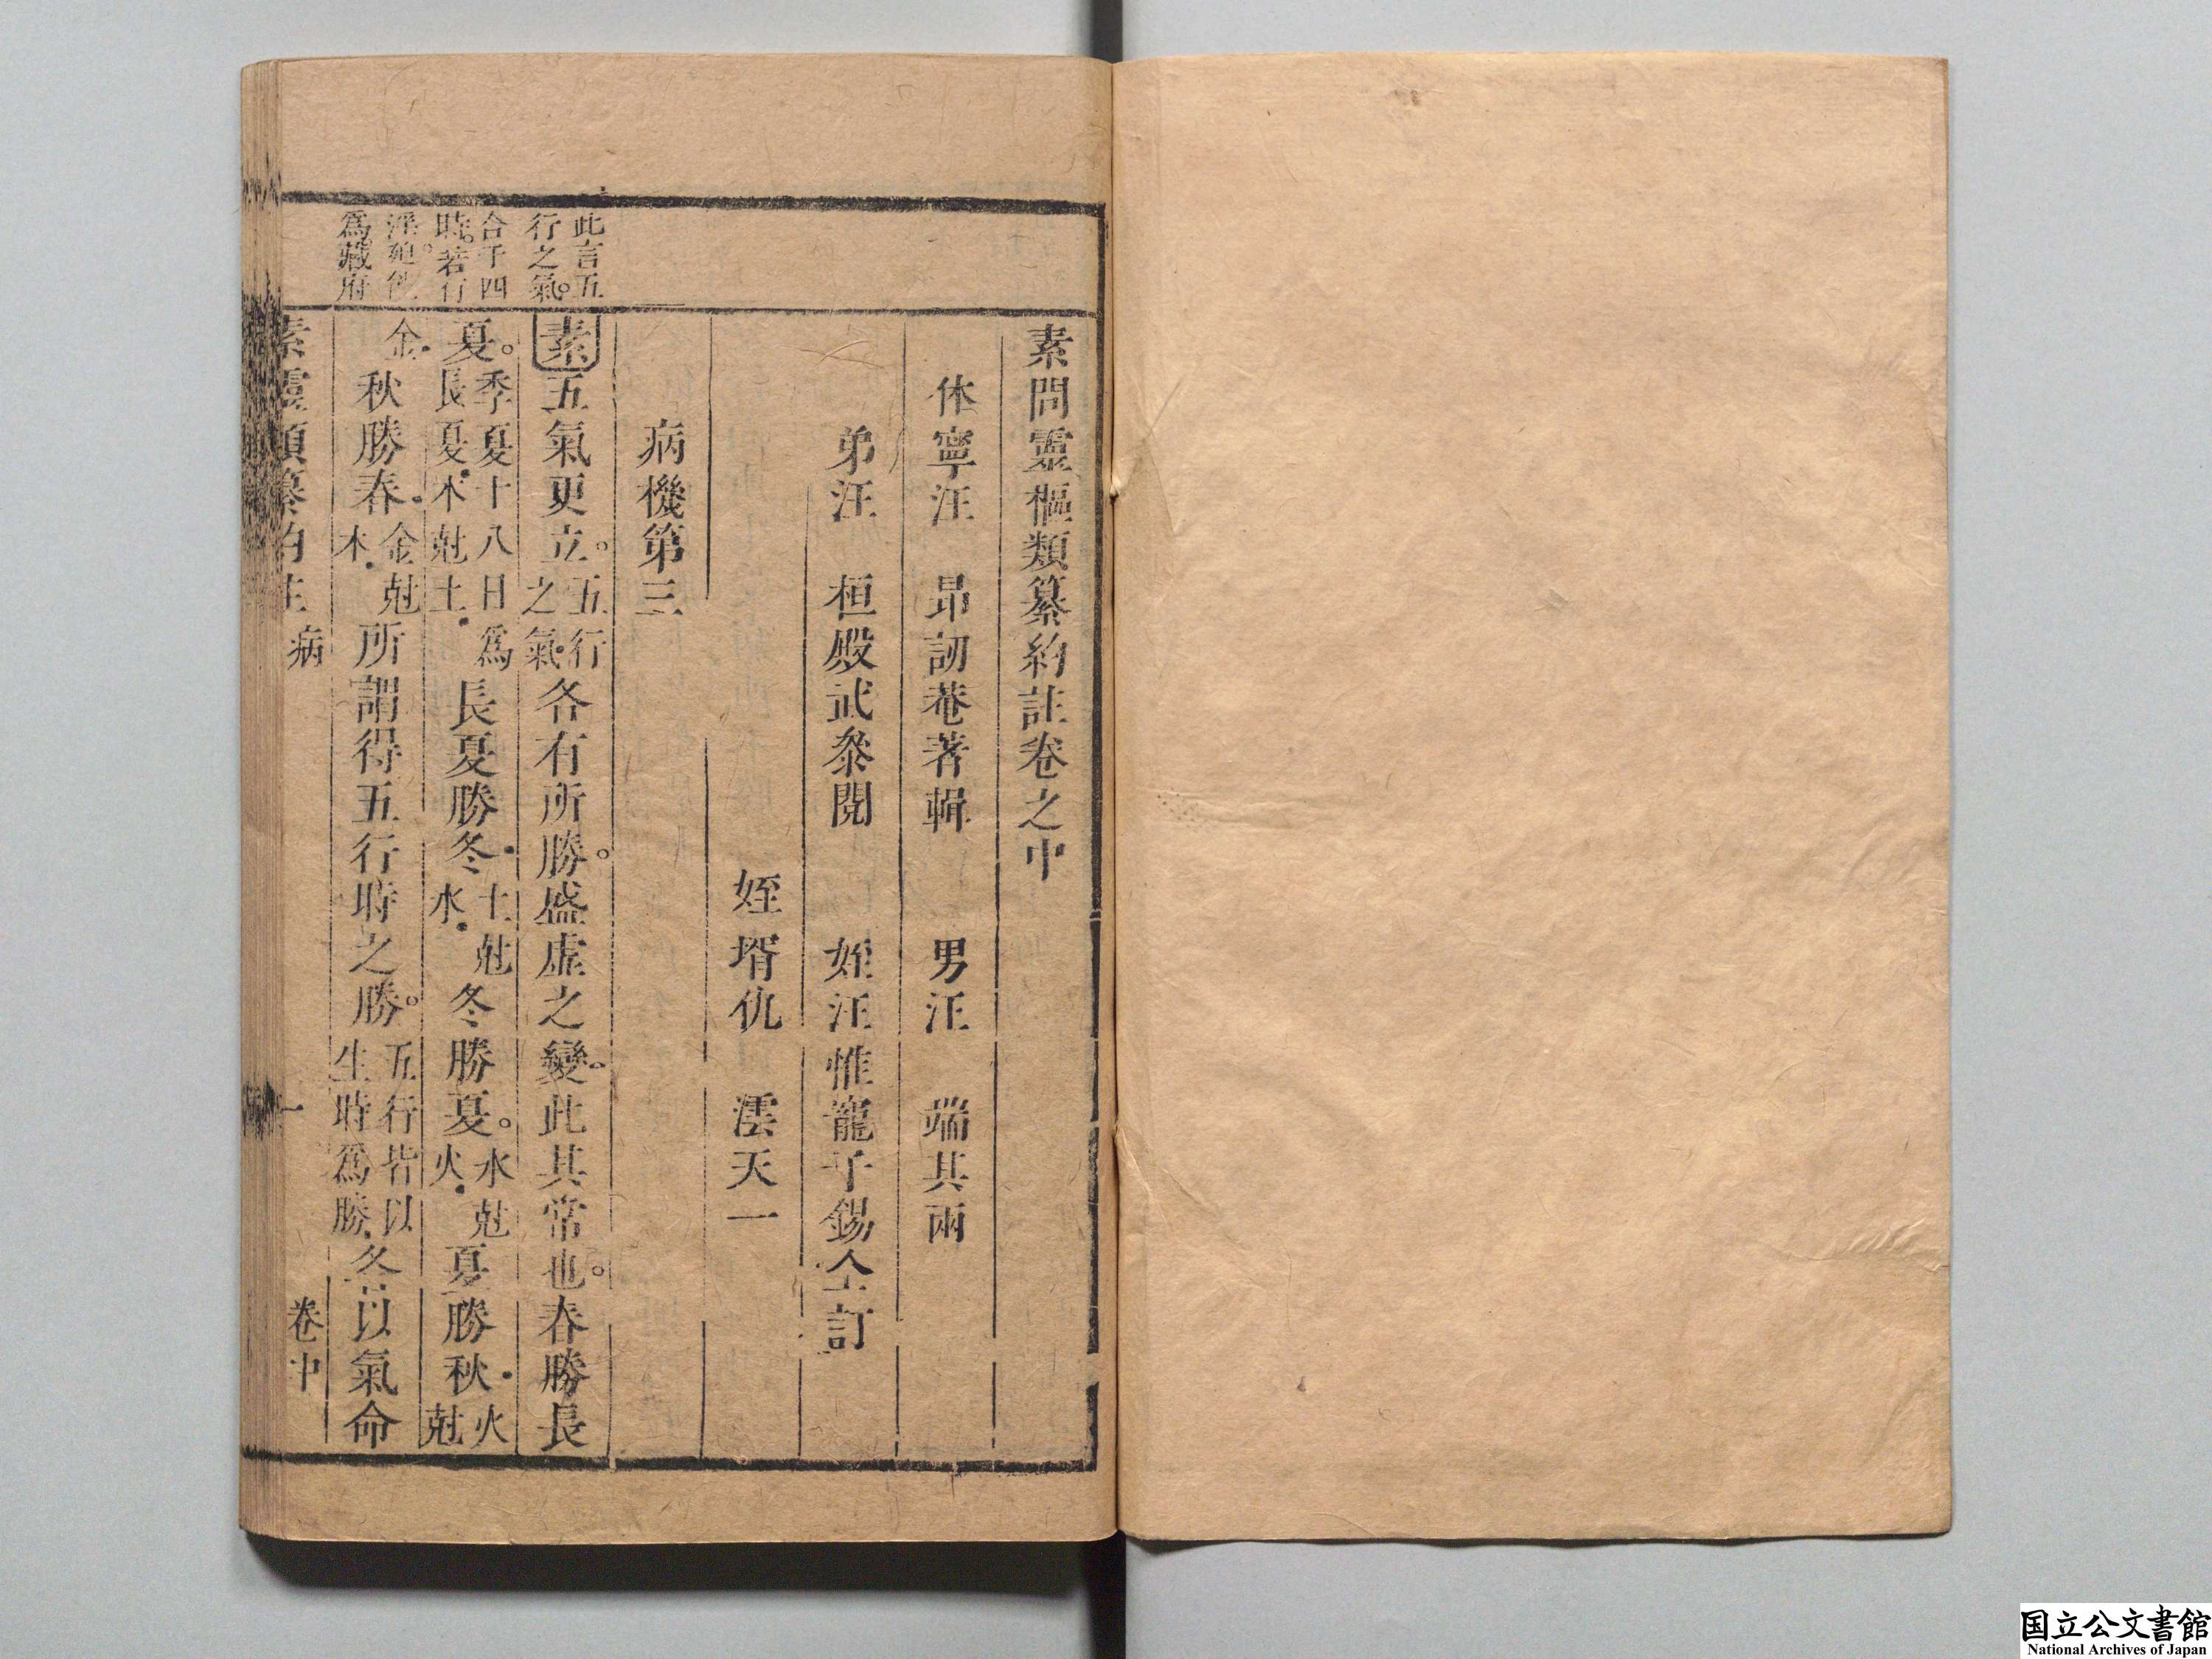 素問靈樞類纂約註卷之中
休寧汪　昂訒菴著輯　男汪　端其兩
弟汪　桓殿武叅閱　姪汪惟寵子錫仝訂
姪壻仇　澐天一
病機第三
此言五
行之氣。
合于四
時。若行
淫廹
爲藏府
素五氣更立。五行之氣各有所勝。盛虛之變。此其常也。春勝長
夏。季夏十八日爲長夏。木尅土。長夏勝冬。土尅水。冬勝夏。水尅火。夏勝秋。火尅
金。秋勝春。金尅木。所謂得五行時之勝。五行皆以生時爲勝。各以氣命
素靈類纂約註　病　一　卷中
国立公文書館
National Archives of Japan